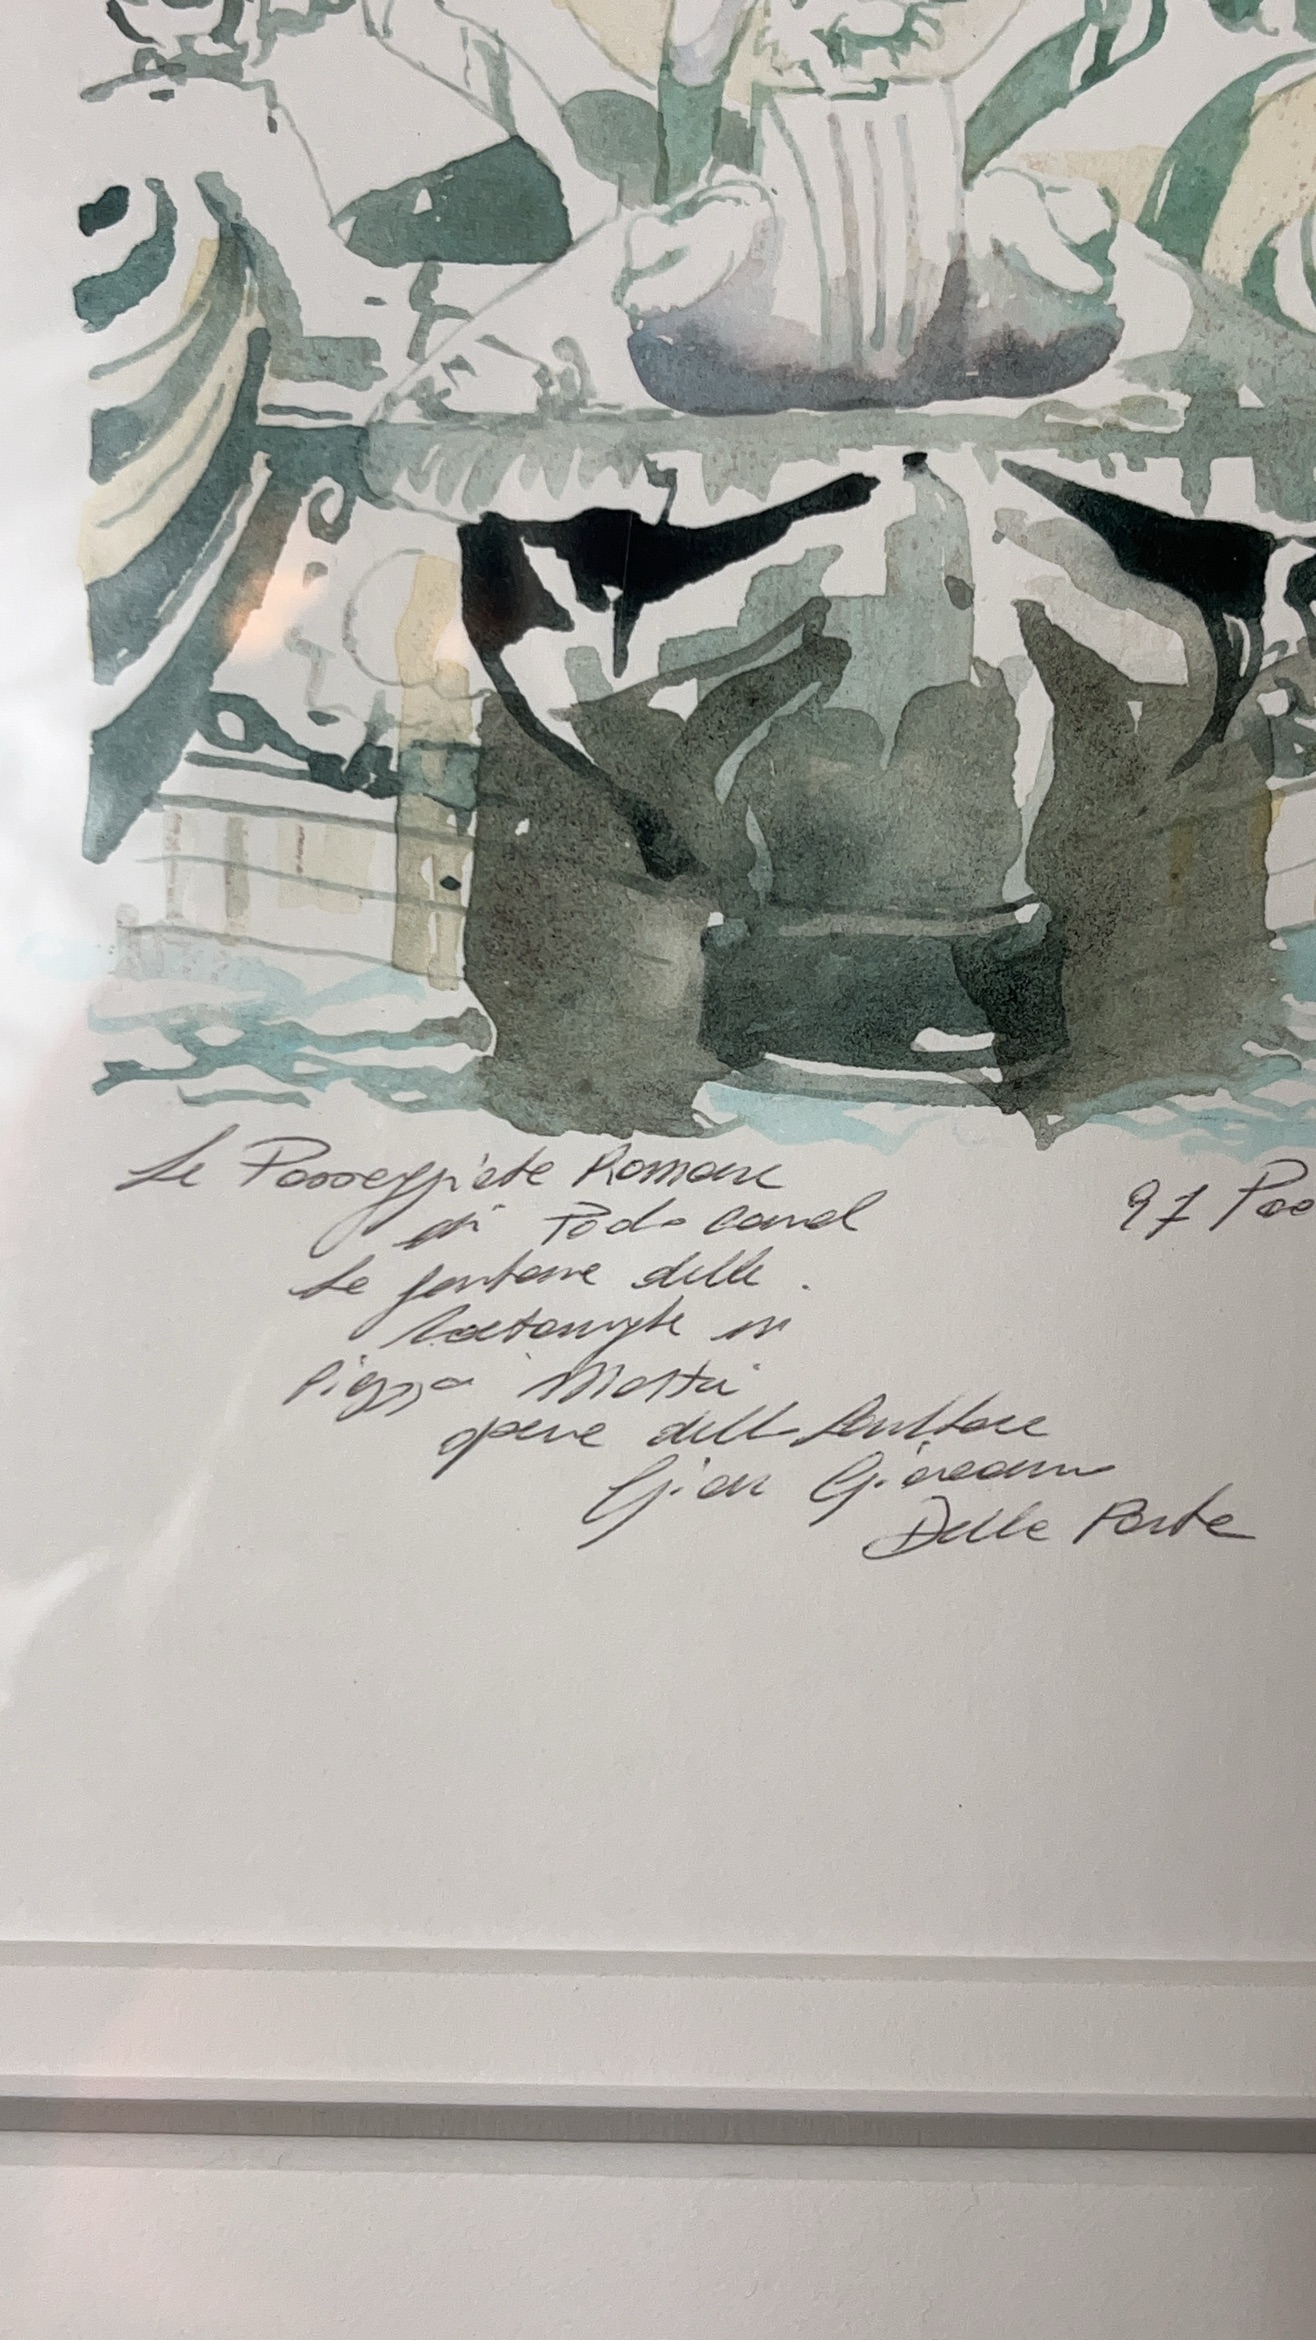 Le Passeggiate Romane
di Podo
Le fontane delle
Tartarughe in
Piazza Mattei
opere dello scultore
Gian Giacomo
Della Porta
97